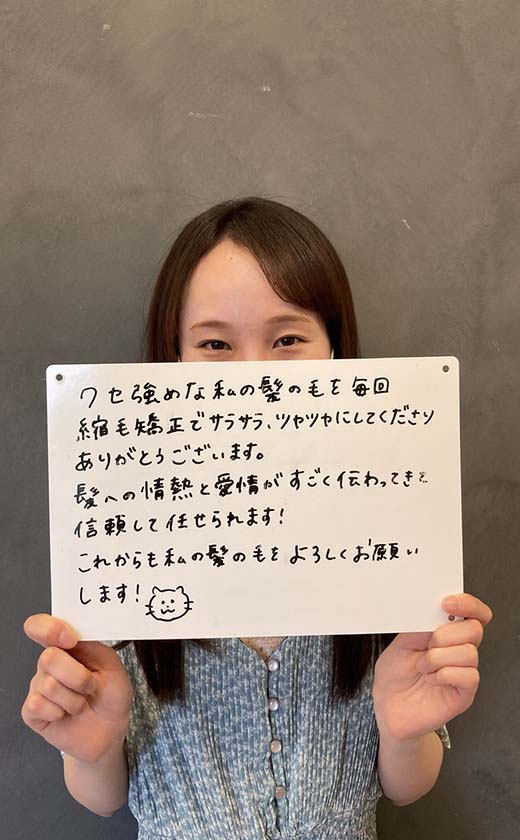 クセ強めな私の髪の毛を毎回
縮毛矯正でサラサラ、ツヤツヤにしてくださり
ありがとうございます。
髪への情熱と愛情がすごく伝わってきて
信頼して任せられます!
これからも私の髪の毛をよろしくお願い
します!